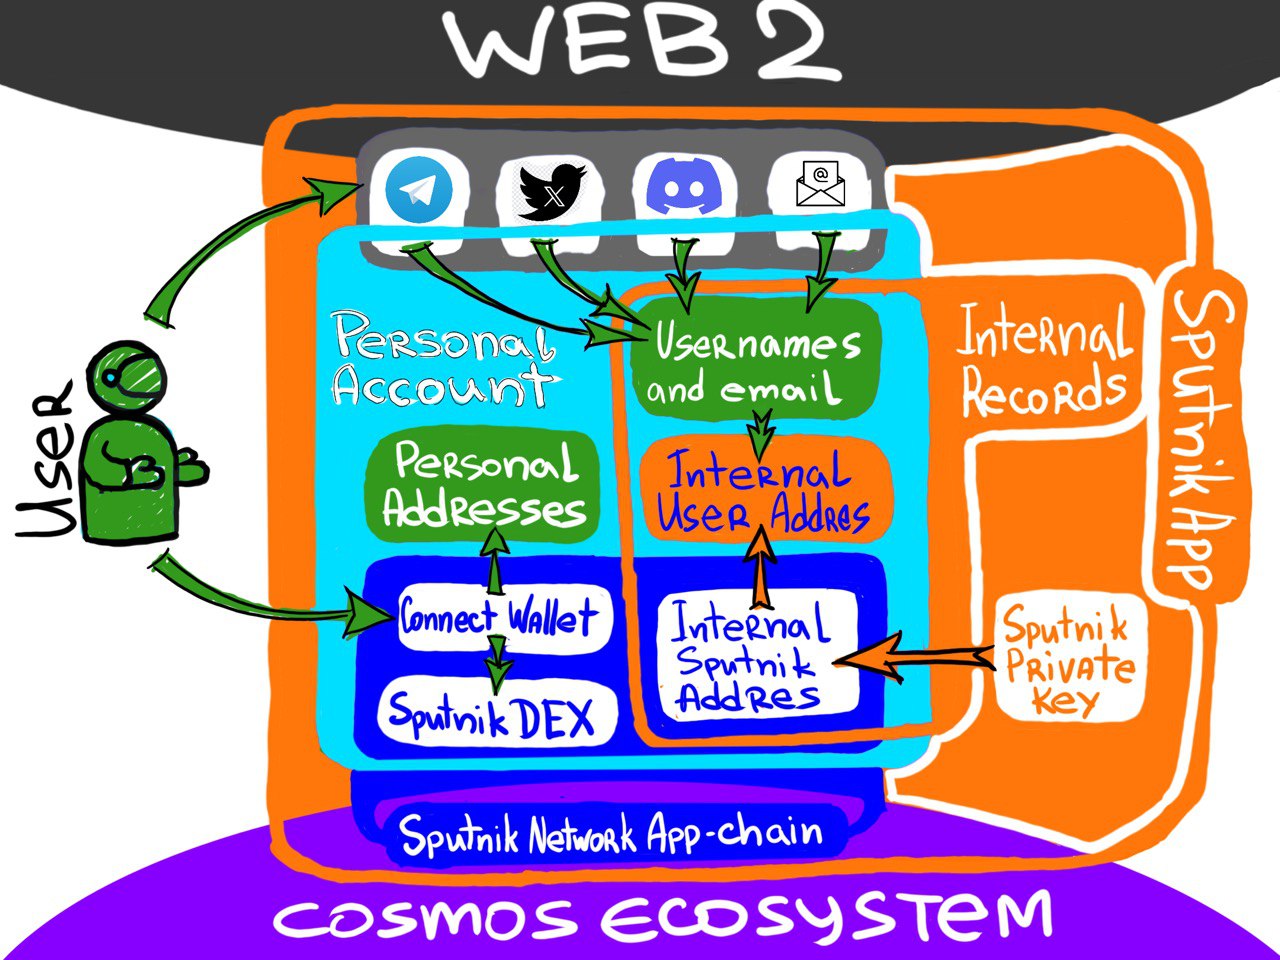 WEB 2
X
@
Personal
Account
Usernames
and email
Internal
Records
Sputnik App
User
Personal
Addresses
Internal
User Addres
Connect Wallet
Sputnik DEX
Internal
Sputnik
Addres
Sputnik
Private
Key
Sputnik Network App-chain
COSMOS ECOSYSTEM